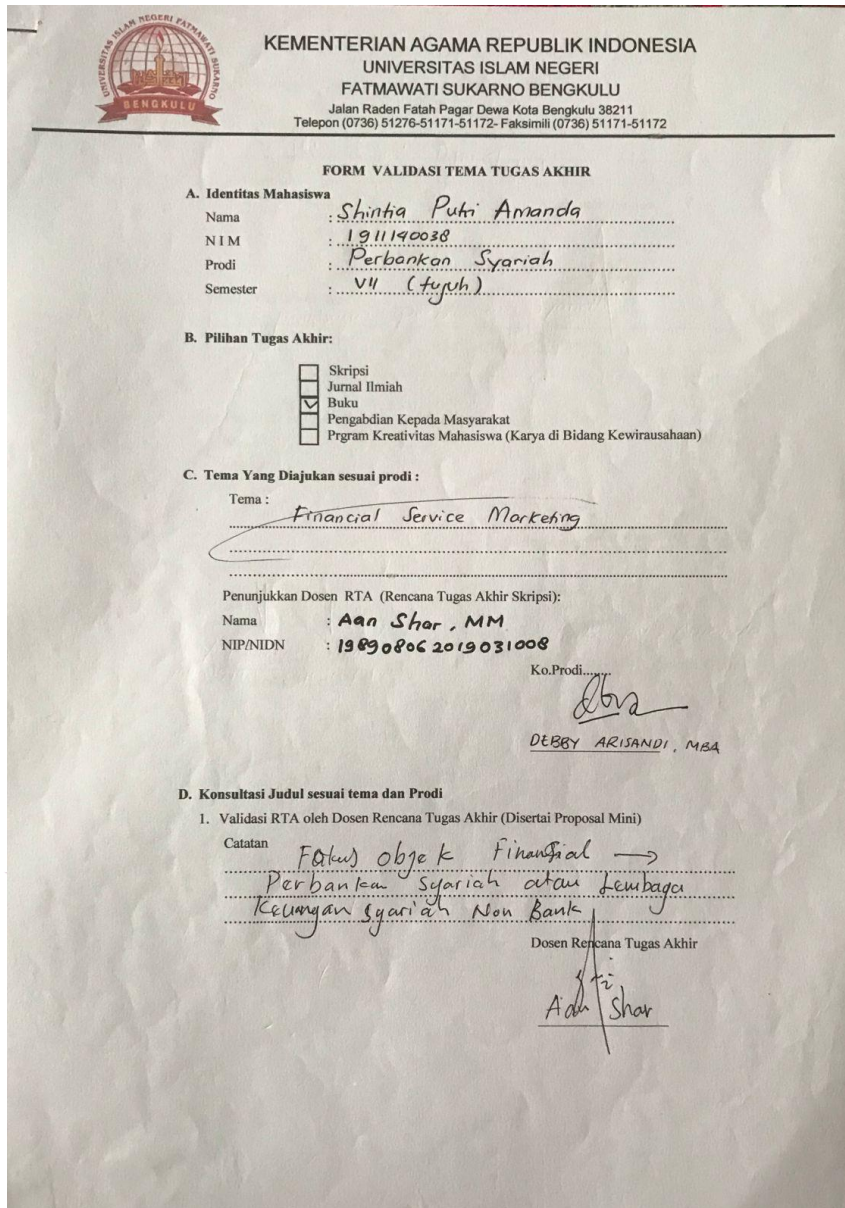 UNIVERSITAS ISLAM NEGERI FATMAWATI SUKARNO
BENGKULU
KEMENTERIAN AGAMA REPUBLIK INDONESIA
UNIVERSITAS ISLAM NEGERI
FATMAWATI SUKARNO BENGKULU
Jalan Raden Fatah Pagar Dewa Kota Bengkulu 38211
Telepon (0736) 51276-51171-51172- Faksimili (0736) 51171-51172
FORM VALIDASI TEMA TUGAS AKHIR
A. Identitas Mahasiswa
Nama : Shintia Putri Amanda
N I M : 1911140038
Prodi : Perbankan Syariah
Semester : VII (tujuh)
B. Pilihan Tugas Akhir:
Skripsi
Jurnal Ilmiah
Buku
Pengabdian Kepada Masyarakat
Prgram Kreativitas Mahasiswa (Karya di Bidang Kewirausahaan)
C. Tema Yang Diajukan sesuai prodi :
Tema :
Financial Service Marketing
Penunjukkan Dosen RTA (Rencana Tugas Akhir Skripsi):
Nama : Aan Shar, MM
NIP/NIDN : 198908062019031008
Ko.Prodi.......
DEBBY ARISANDI, MBA
D. Konsultasi Judul sesuai tema dan Prodi
1. Validasi RTA oleh Dosen Rencana Tugas Akhir (Disertai Proposal Mini)
Catatan Fokus objek Finansial →
Perbankan Syariah atau Lembaga
Keuangan Syariah Non Bank
Dosen Rencana Tugas Akhir
Aan Shar